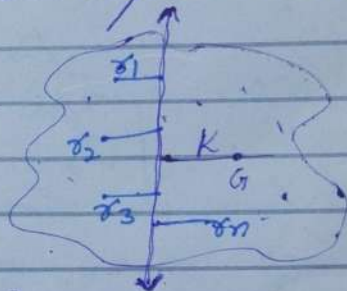 r1
r2
K
G
r3
rn